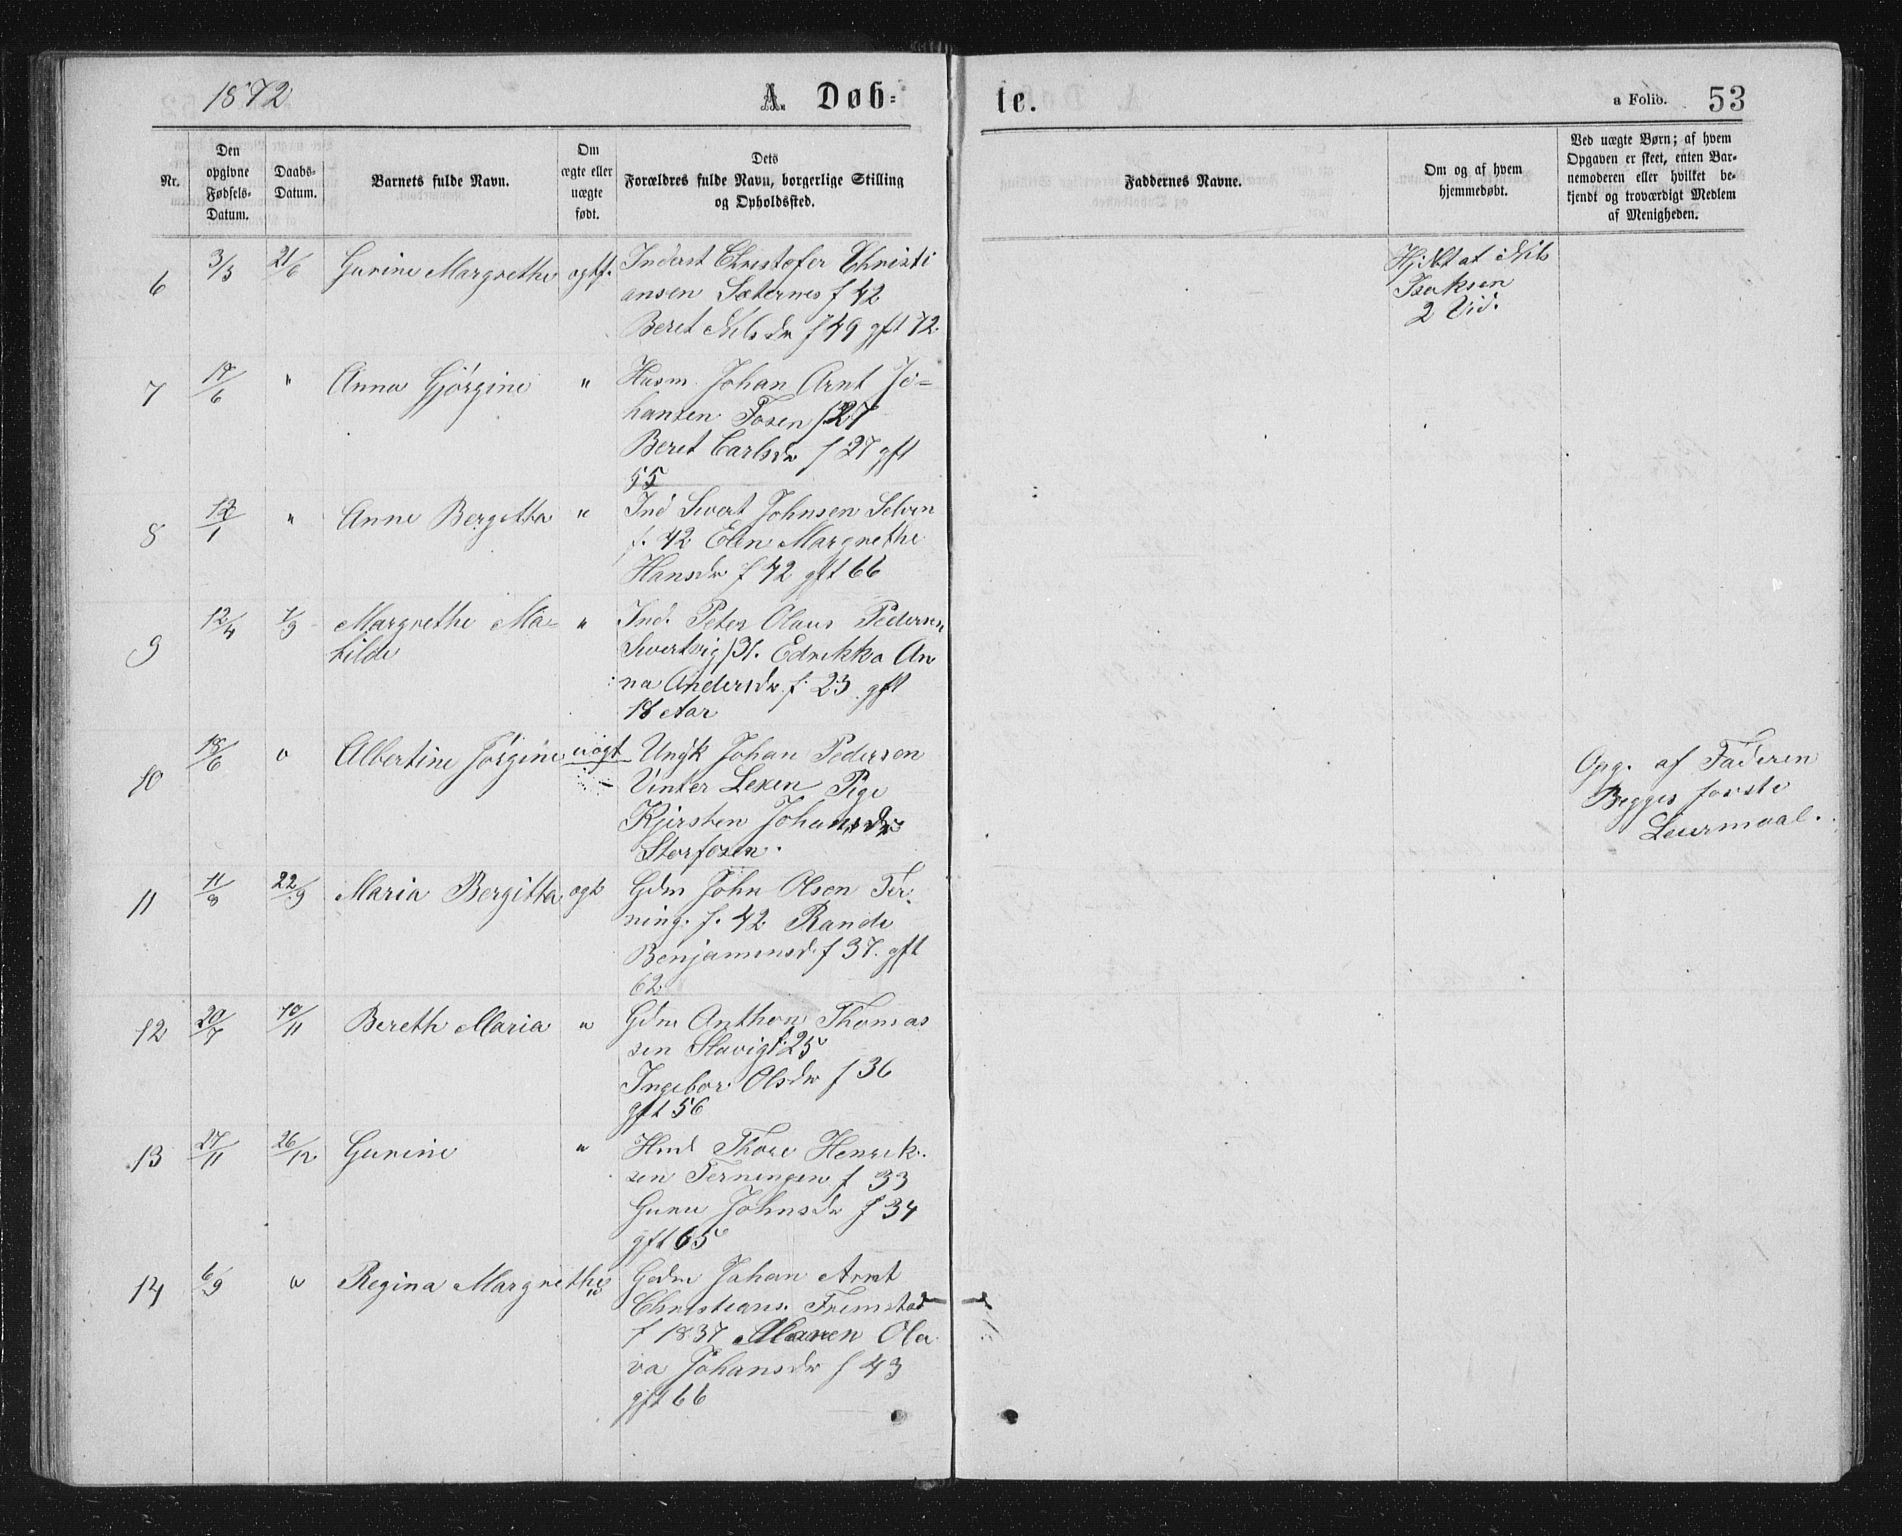 1872 A. Døb=
te. a Folio. 53
Nr.
Den opgivne Fødsels-Datum.
Daabs-Datum.
Barnets fulde Navn.
Om ægte eller uægte født.
Dets Forældres fulde Navn, borgerlige Stilling og Opholdssted.
Faddernes Navne.
Om og af hvem hjemmedøbt.
Ved uægte Børn; af hvem Opgaven er skeet, enten Barnemoderen eller hvilket bekjendt og troværdigt Medlem af Menigheden.
6 3/3 21/6 Gurine Margrethe ægtf. Inderst Christofer Christi
ansen Sæternes f 42
Beret Nilsdr f 49 gft 72
Hj dbt af Nils
Isaksen
2 Vid.
7 17/6 " Anna Gjørgine " Husm. Johan Arnt Jo=
hansen Fosen f 27
Beret Carlsdr f 27 gft
55
8 12/1 " Anne Bergitta " Ind Sivert Johnsen Selven
f. 42 Elen Margrethe
Hansdr f 42 gft 66
9 12/4 1/9 Margrethe Ma= " Ind. Peter Olaus Pedersen
tilde
Sivertsvig f 31. Edrikka An
na Andersdr. f. 23 gft
18 Aar
10 18/6 " Albertine Jørgine uægt Ungk Johan Pedersen
Vinter Lexen Pige
Kjersten Johansdr
Storfosen.
Opg. af Faderen
Begges første
Leiermaal.
11 11/8 22/9 Maria Bergitta ægt Gdm John Olsen Ter-
ning. f. 42 Randi
Benjaminsd. f 37. gft
62
12 20/7 10/11 Bereth Maria " Gdm Anthon Thomas
sen Slavig f. 25
Ingebor. Olsdr f 36
gft 56
13 27/11 26/12 Gurine " Hmd Thore Henrik.
sen Terningen f 33
Guru Johnsdr f 34
gft 65
14 6/9 " Regina Margrethe " Gdm Johan Arnt
Christians. Fremstad
f 1837 Maren Ola
va Johansdr f 43
gft 66